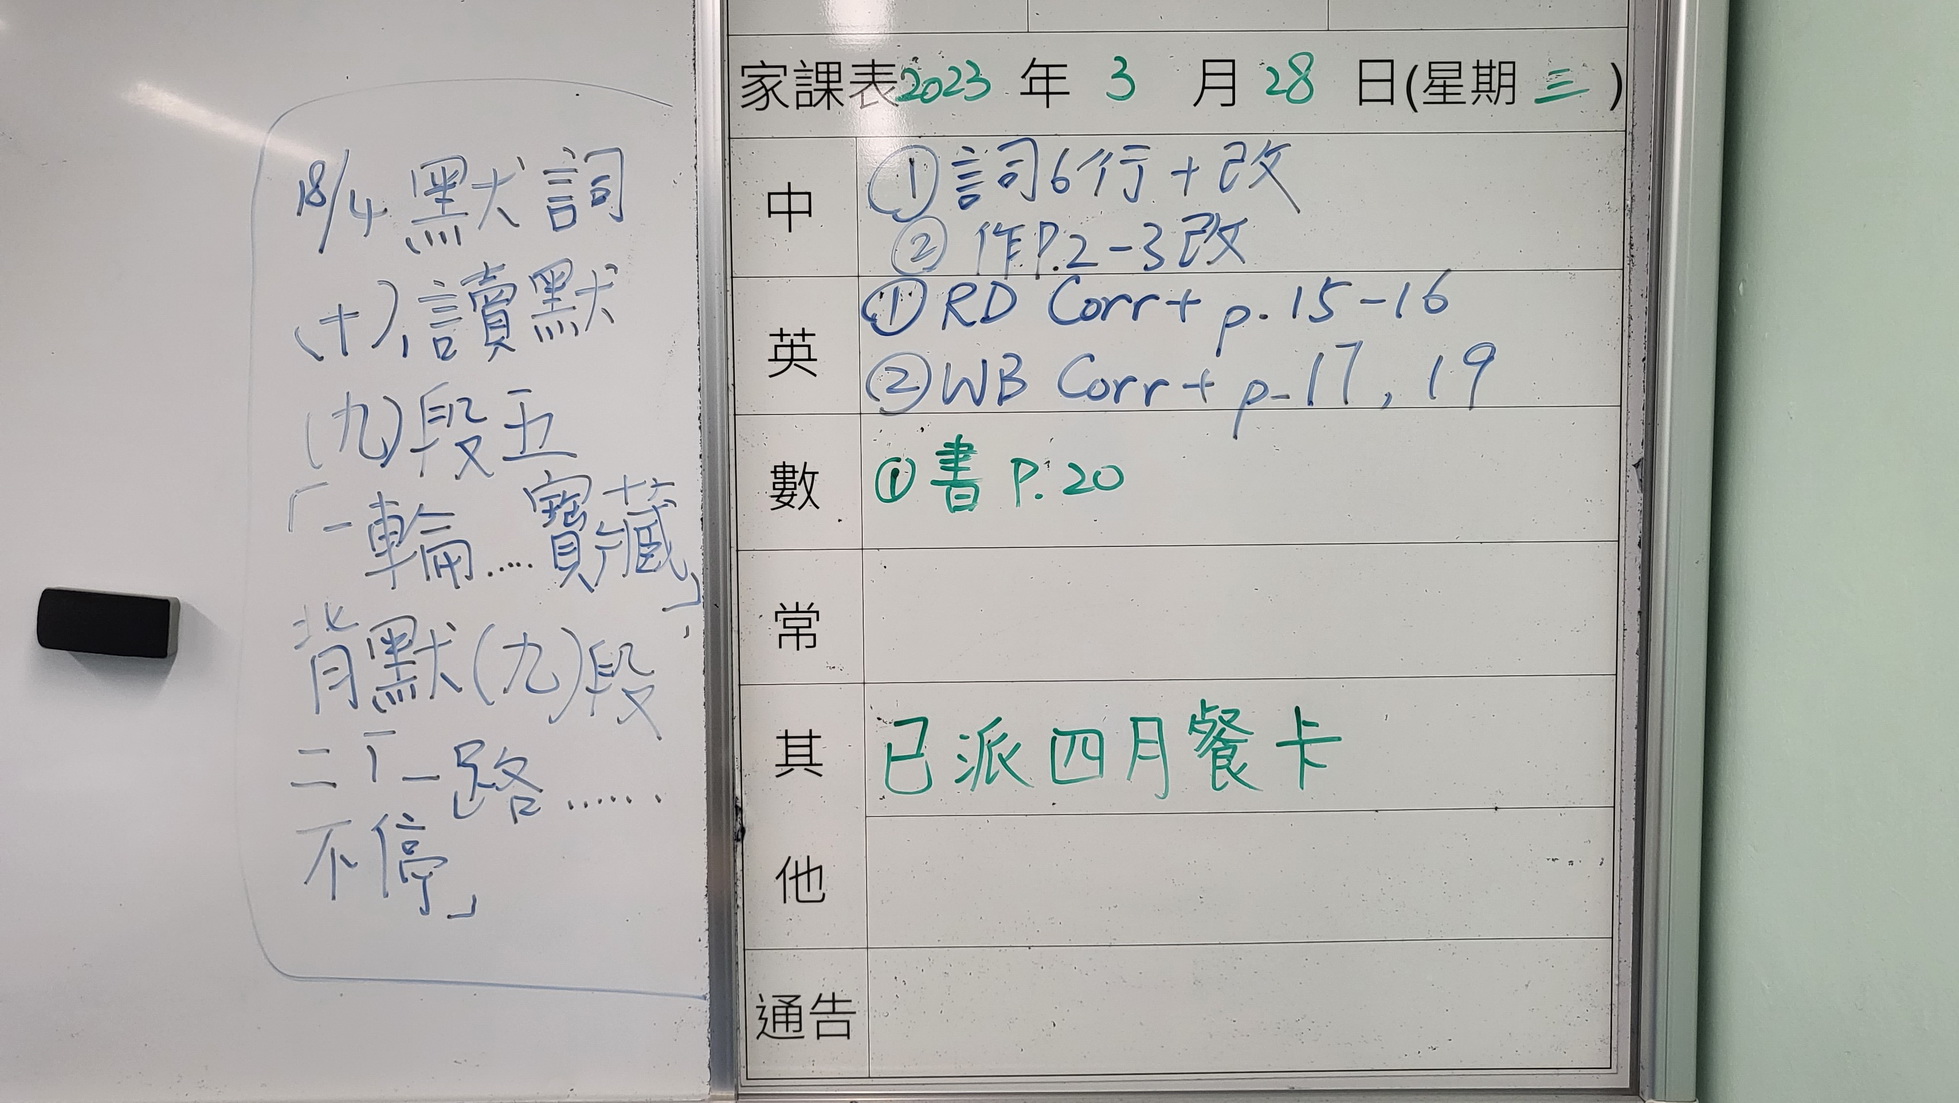 18/4 默詞
(十),讀默
(九)段五
「一輪.....寶藏」;
背默(九)段
二「一路......
不停」
家課表2023 年 3 月 28 日(星期 三 )
中
①詞6行+改
② 作P.2-3改
英
①RD Corr+ p.15-16
②WB Corr+ p.17, 19
數
①書 P.20
常
其
已派四月餐卡
他
通告